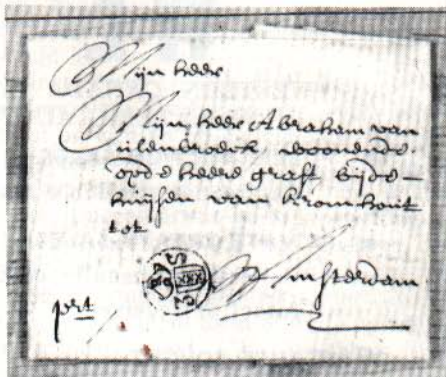 Mijn heer
Mijn heer Abraham van
uÿlenbroeck woonende
op de heere graft bij de
huÿsen van kromhout
tot
Amsterdam
port